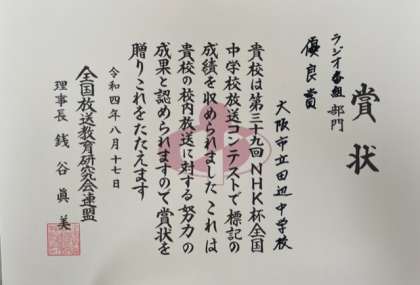 賞状
ラジオ番組部門
優良賞
大阪市立田辺中学校
貴校は第三十九回NHK杯全国
中学校放送コンテストで標記の
成績を収められました これは
貴校の校内放送に対する努力の
成果と認められますので賞状を
贈りこれをたたえます
令和四年八月十七日
全国放送教育研究会連盟
理事長 銭谷眞美